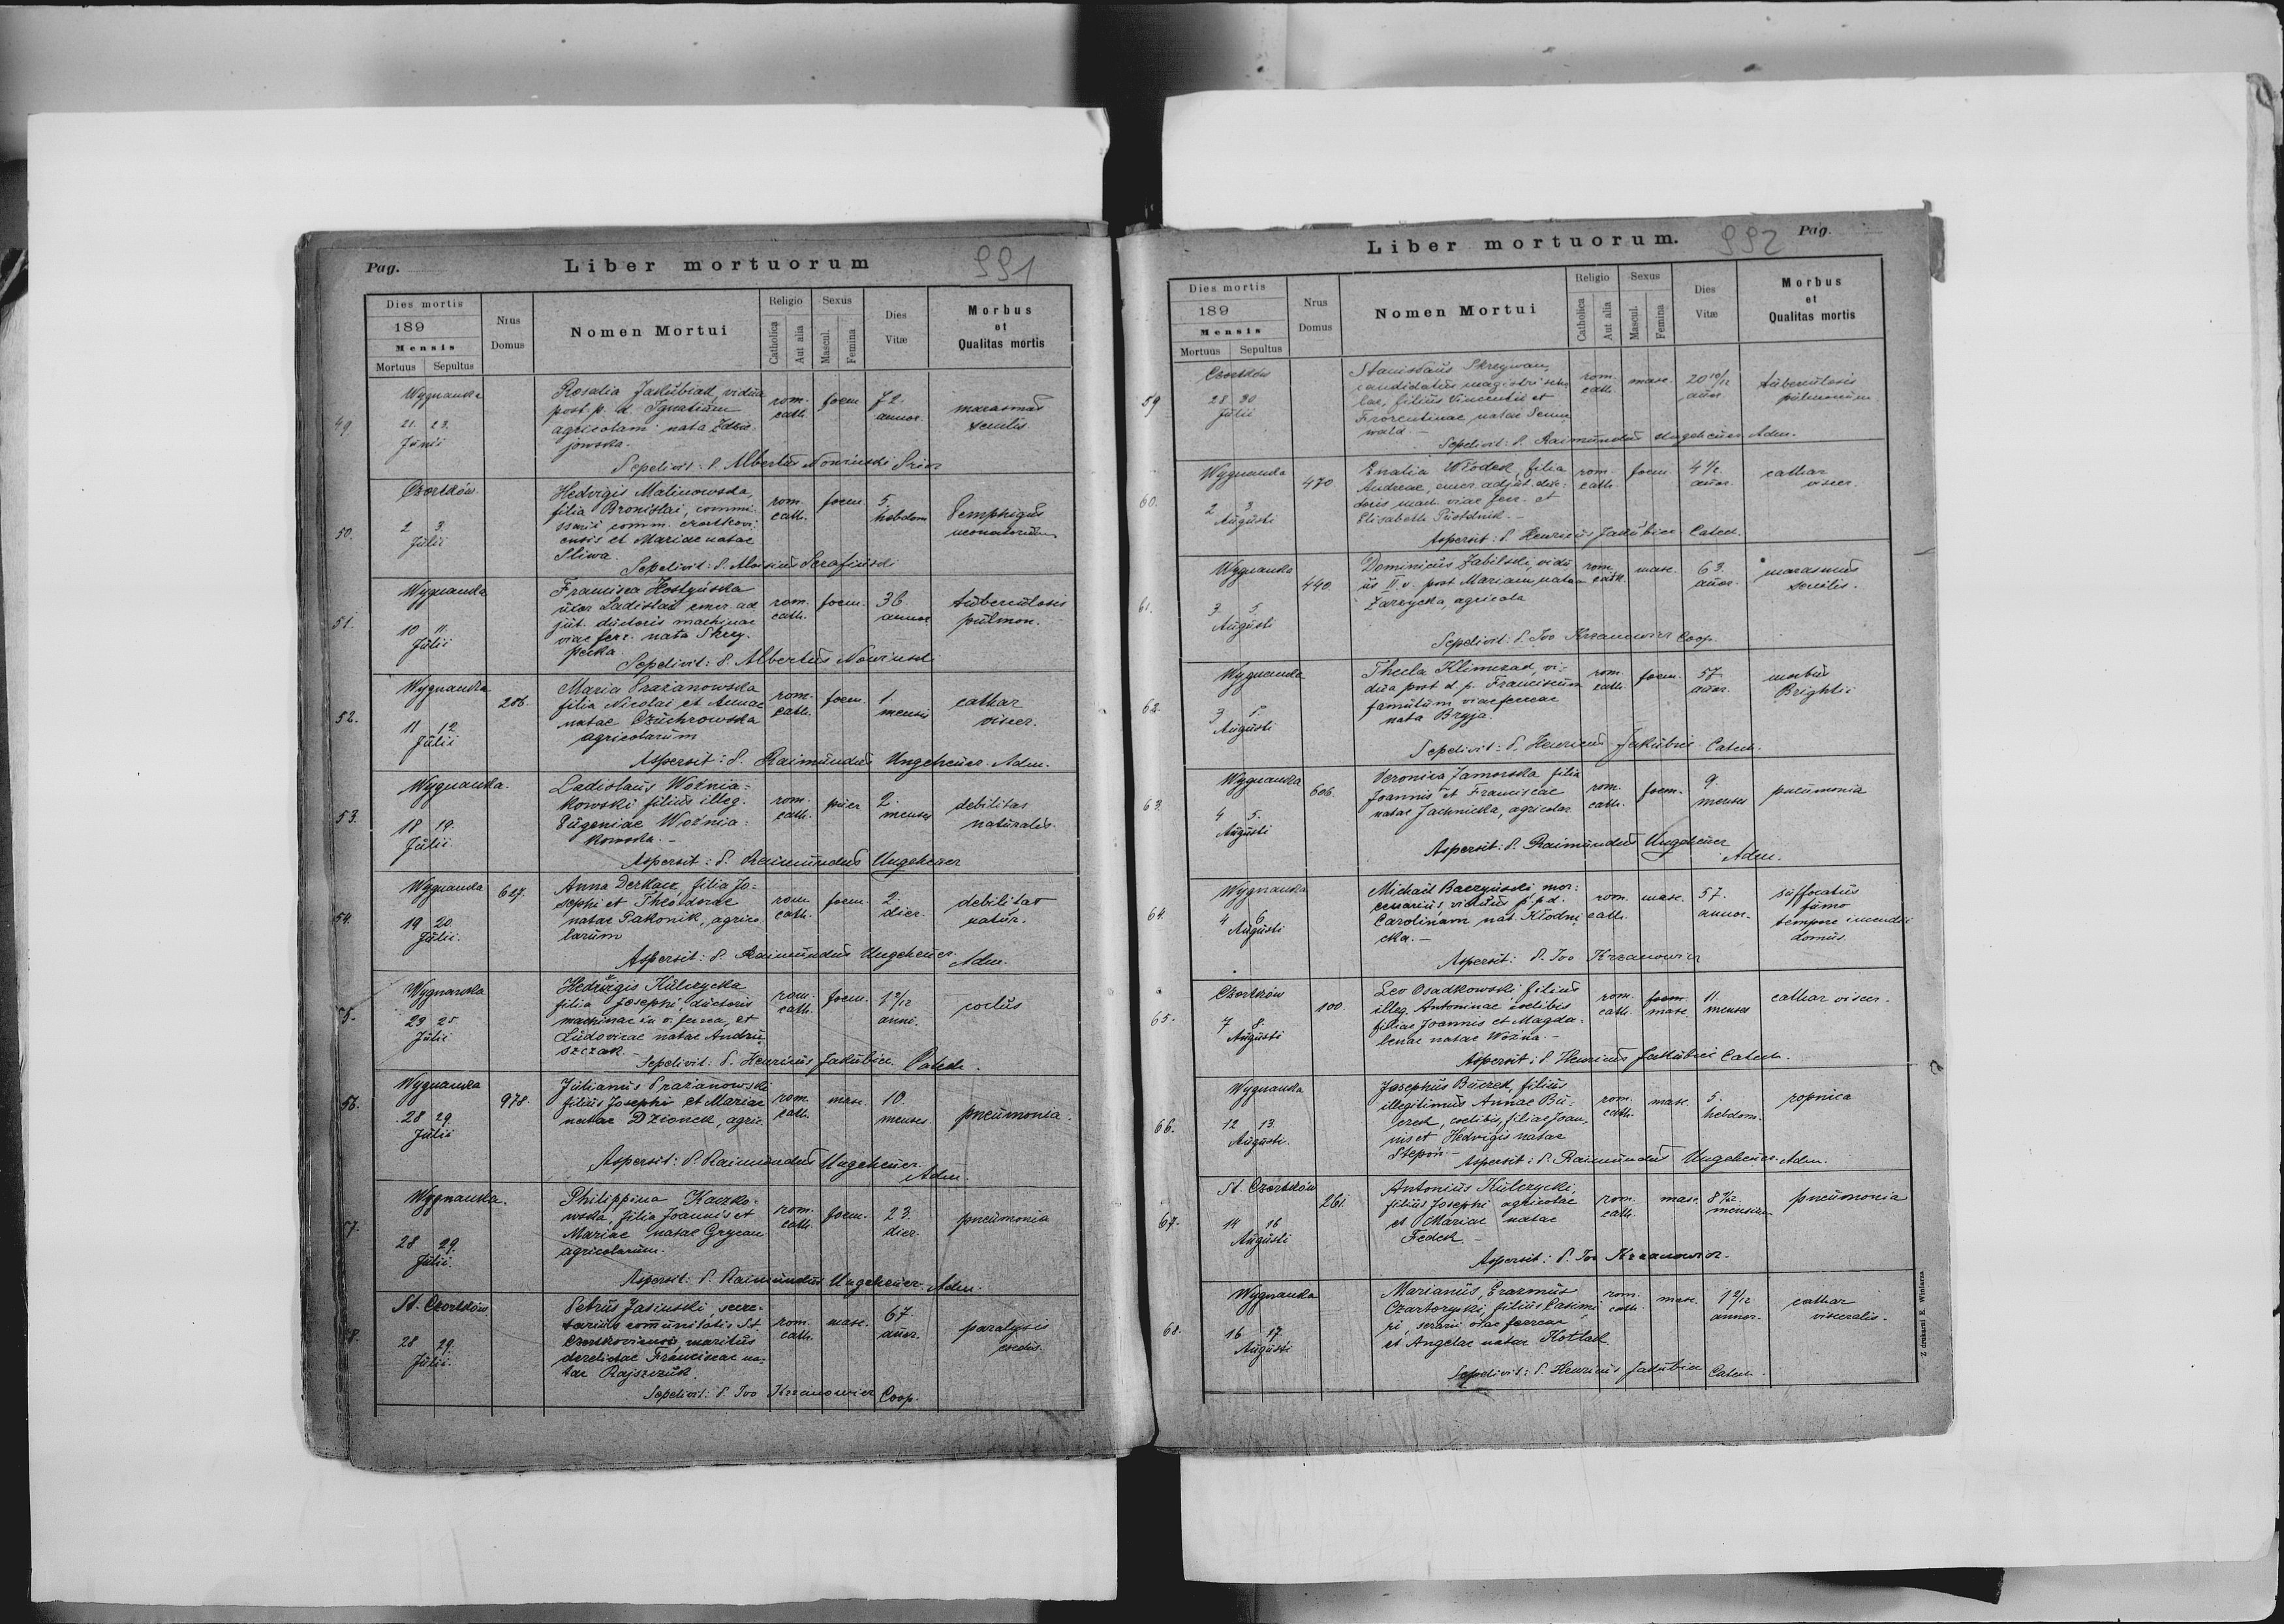 Pag.
Liber mortuorum
991
Dies mortis
189
Mensis
Mortuus Sepultus
Nrus Domus
Nomen Mortui
Religio
Catholica Aut alia
Sexus
Mascul. Femina
Dies Vitæ
Morbus et Qualitas mortis
49
Wygnanka
21. 23.
Junii
Rosalia Jakubiak, vidua
post p. d. Ignatium
agricolam nata
jowska.
rom. cath.
foem
72. annor.
marasmus senilis
Sepelivit: P. Albertus Nowinski Prior
50.
Czortków.
2 3.
Julii
Hedvigis Malinowska,
filia Bronislai, commi-
ssarii comm. czortkovi-
ensis et Mariae natae
Sliwa.
rom. cath.
foem
5. hebdom
Pemphigus neonatorum
Sepelivit: P. Aloisius Serafinski
51.
Wygnanka
10 11.
Julii
Francisca Hostyńska
uxor Ladislai emer. ad
jut. ductoris machinae
viae ferr. nata Skrzy-
pecka.
rom. cath.
foem.
36 annor
tuberculosis pulmon.
Sepelivit: P. Albertus Nowinski
52.
Wygnanka
11 12
Julii
206.
Maria Prażanowska
filia Nicolai et Annae
natae Czuchrowska
agricolarum
rom. cath.
foem.
1. mensis
cathar viscer.
Aspersit: P. Raimundus Ungeheuer. Adm.
53.
Wygnanka.
18 19.
Julii
Ladislaus Woźnia-
kowski filius illeg.
Eugeniae Woźnia-
kowska. -
rom. cath.
puer
2. menses
debilitas naturalis.
Aspersit: P. Raimundus Ungeheuer
54.
Wygnanka
19 20.
Julii.
627.
Anna Derkacz, filia Jo-
sephi et Theodorae
natae Pakonik, agrico
larum
rom cath.
foem.
2. dier.
debilitas natur.
Aspersit: P. Raimundus Ungeheuer. Adm.
55.
Wygnanka
23 25
Julii
Hedvigis Kulczycka
filia Josephi, ductoris
machinae in v. ferrea, et
Ludovicae natae Andru
szczak. -
rom. cath.
foem.
anni.
Sepelivit: P. Henricus Jakubiec. Catech.
56.
Wygnanka
28 29
Julii
978.
Julianus Prażanowski
filius Josephi et Mariae
natae Dzionek, agric.
rom. cath.
masc.
10. menses
pneumonia.
Aspersit: P. Raimundus Ungeheuer. Adm.
57.
Wygnanka.
28 29.
Julii.
Philippina Kaczko-
wska, filia Joannis et
Mariae natae Grycan
agricolarum.
rom. cath.
foem.
23. dier.
pneumonia
Aspersit: P. Raimundus Ungeheuer. Adm.
58.
St. Czortków
28 29.
Julii.
Petrus Jasinski, secre-
tarius communitatis St.
maritus
derelictae Franciscae na-
tae Rajszczuk.
rom. cath.
masc.
67. annor.
paralysis cordis.
Sepelivit: P. Ivo Krzanowicz Coop.
Liber mortuorum.
992
Pag.
Dies mortis
189
Mensis
Mortuus Sepultus
Nrus Domus
Nomen Mortui
Religio
Catholica Aut alia
Sexus
Mascul. Femina
Dies Vitæ
Morbus et Qualitas mortis
59
Czortków
28 30
Julii
Stanislaus Skrzywan,
candidatus magistri scho
lae, filius Vincentii et
Florentinae natae
wald. -
rom. cath.
masc.
20 10/12 annor.
tuberculosis pulmonum.
Sepelivit: P. Raimundus Ungeheuer Adm.
60.
Wygnanka
2 3.
Augusti
470.
Włodek, filia
Andreae, emer. adjut. duc-
toris mach. viae ferr. et
Elisabeth Piotrnik. -
rom. cath.
foem.
annor.
cathar viscer.
Aspersit: P. Henricus Jakubiec Catech.
61.
Wygnanka
3 5.
Augusti
440.
Dominicus Zabilski, vidu
us II. v. post Mariam natam
Zarzycka, agricola
rom. cath.
masc.
63. annor.
marasmus senilis.
Sepelivit: P. Ivo Krzanowicz Coop.
62.
Wygnanka
3 5.
Augusti
Thecla Klimczak, vi-
dua post d. p. Franciscum
famulum viae ferreae
nata Bryja.
rom. cath.
foem.
57. annor.
morbus Brightii
Sepelivit: P. Henricus Jakubiec Catech.
63.
Wygnanka
4 5.
Augusti
606.
Veronica Jamorska filia
Joannis et Franciscae
natae Jachnicka, agricolar
rom. cath.
foem.
9. menses
pneumonia
Aspersit: P. Raimundus Ungeheuer Adm.
64.
Wygnanka
4 6.
Augusti
Michael Baczyński, mer-
cenarius, viduus p. p. d.
Carolinam nat. Kłodni
cka. -
rom. cath.
masc.
57. annor.
suffocatus fumo
tempore incendii domus.
Aspersit: P. Ivo Krzanowicz
65.
Czortków
7 8.
Augusti
100.
Leo Osadkowski, filius
illeg. Antoninae coelibis
filiae Joannis et Magda-
lenae natae Woźna. -
rom. cath.
foem. masc.
11. menses
cathar viscer.
Aspersit: P. Henricus Jakubiec Catech.
66.
Wygnanka
12 13.
Augusti.
Josephus Buczek, filius
illegitimus Annae Bu-
czek, coelibis, filiae Joan
nis et Hedvigis natae
Stepoń. -
rom. cath.
masc.
5. hebdom.
ropnica
Aspersit: P. Raimundus Ungeheuer. Adm.
67.
St. Czortków
14 16
Augusti
261.
Antonius Kulczycki,
filius Josephi agricolae
et Mariae natae
Fedek. -
rom. cath.
masc.
mensium
pneumonia
Aspersit: P. Ivo Krzanowicz.
68.
Wygnanka
16 17
Augusti
Marianus, Erazmus
Czartoryski, filius Casimi
ri, serarii viae ferreae
et Angelae natae Kotlak
rom. cath.
masc.
annor.
cathar visceralis.
Sepelivit: P. Henricus Jakubiec Catech.
Z drukarni E. Winiarza